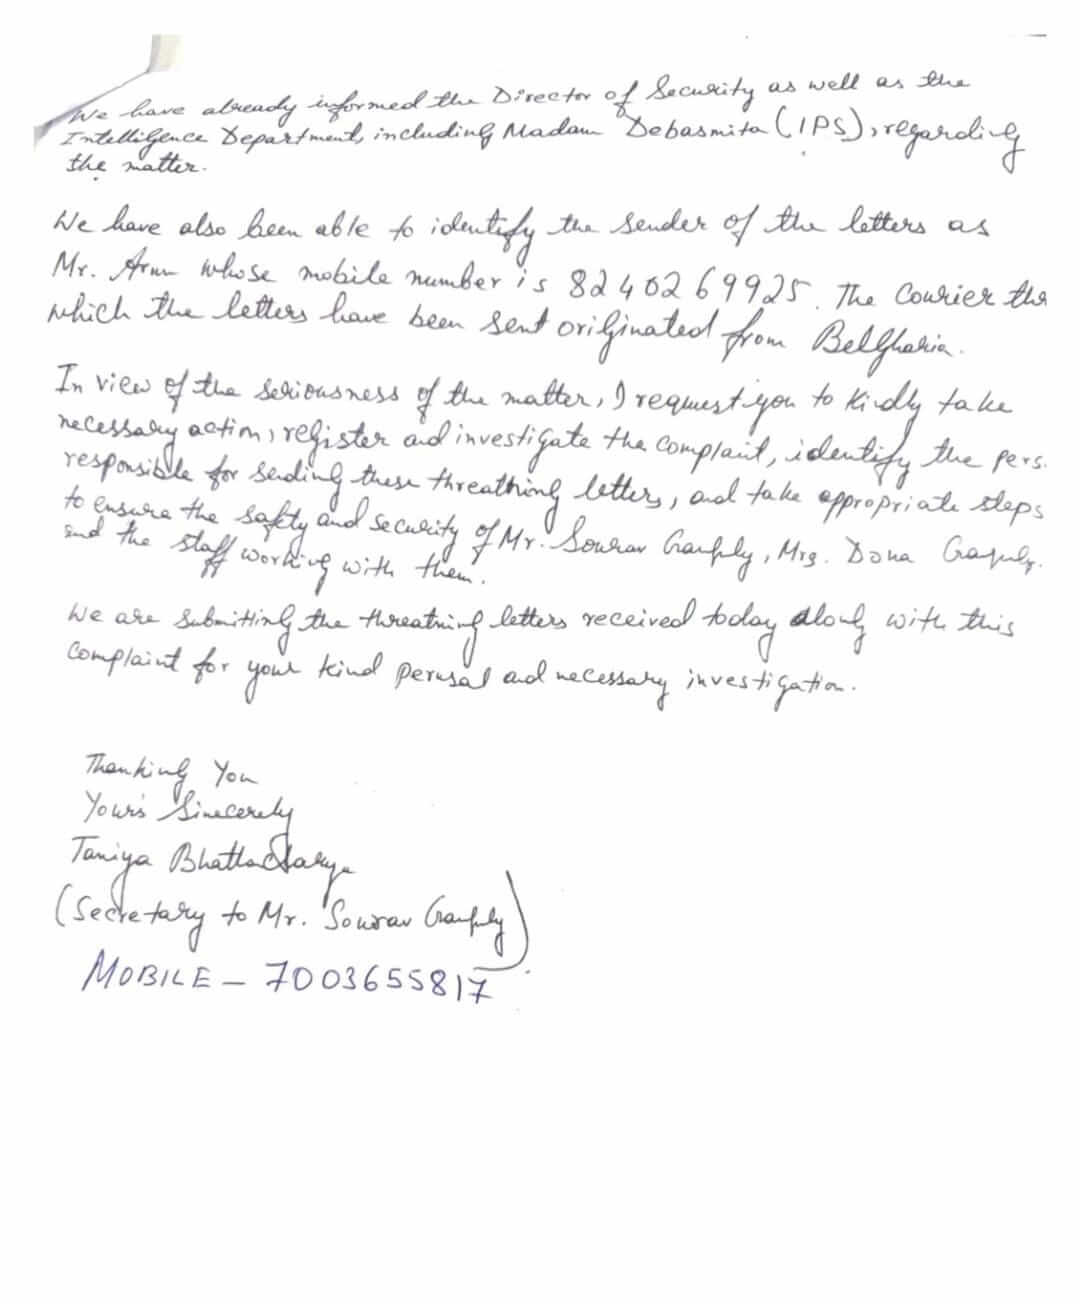 We have already informed the Director of Security as well as the
Intelligence Department, including Madam Debasmita (IPS), regarding
the matter.
We have also been able to identify the sender of the letters as
Mr. Arun whose mobile number is 8240269925. The Courier thr
which the letters have been sent originated from Belgharia.
In view of the seriousness of the matter, I request you to kindly take
necessary action, register and investigate the complaint, identify the pers
responsible for sending these threathning letters, and take appropriate steps
to ensure the safety and security of Mr. Sourav Ganguly, Mrs. Dona Ganguly.
and the staff working with them.
We are submitting the threatning letters received today along with this
complaint for your kind perusal and necessary investigation.
Thanking You
Your's Sincerely
Taniya Bhattacharya
(Secretary to Mr. Sourav Ganguly)
MOBILE - 7003655817